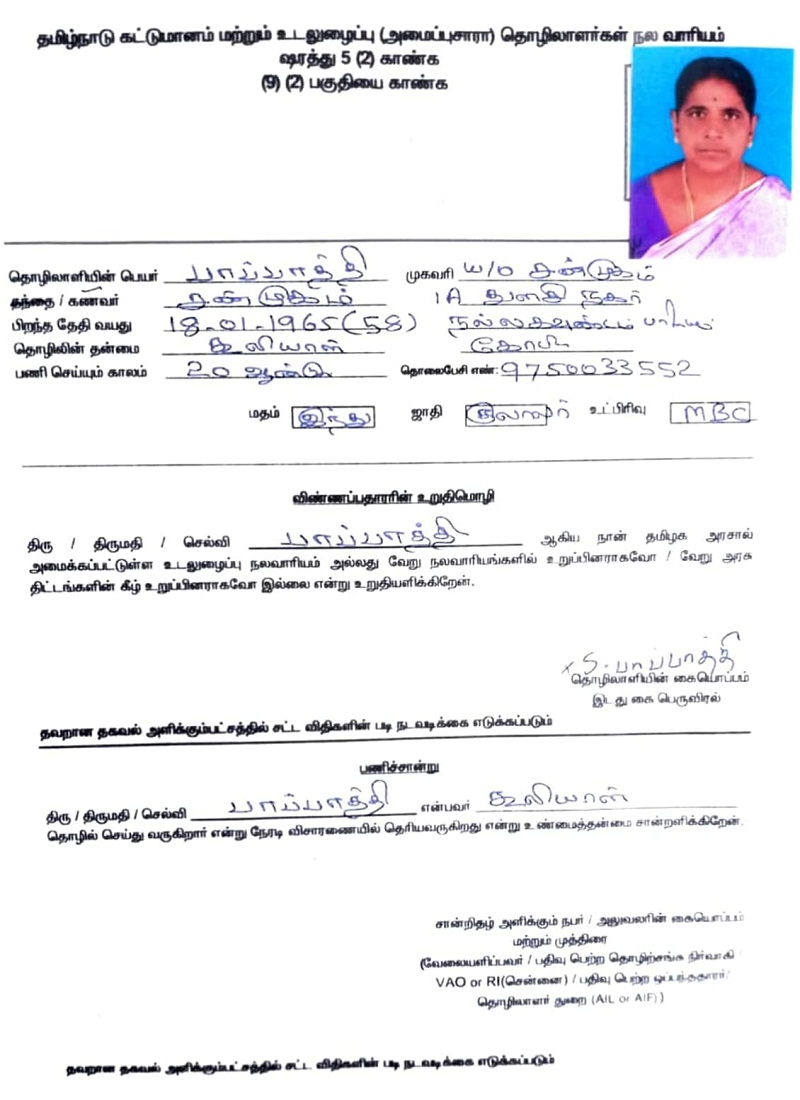 தமிழ்நாடு கட்டுமானம் மற்றும் உடலுழைப்பு (அமைப்புசாரா) தொழிலாளர்கள் நல வாரியம்
ஷரத்து 5 (2) காண்க
(9) (2) பகுதியை காண்க
தொழிலாளியின் பெயர் பாப்பாத்தி முகவரி W/O சண்முகம்
தந்தை / கணவர் சண்முகம் 1A துளசி நகர்
பிறந்த தேதி வயது 18-01-1965 (58) நல்லகவுண்டம்பாளையம்
தொழிலின் தன்மை கூலியாள் கோபி
பணி செய்யும் காலம் 20 ஆண்டு தொலைபேசி எண்: 9750033552
மதம் இந்து ஜாதி குலாளர் உட்பிரிவு MBC
விண்ணப்பதாரரின் உறுதிமொழி
திரு / திருமதி / செல்வி பாப்பாத்தி ஆகிய நான் தமிழக அரசால்
அமைக்கப்பட்டுள்ள உடலுழைப்பு நலவாரியம் அல்லது வேறு நலவாரியங்களில் உறுப்பினராகவோ / வேறு அரசு
திட்டங்களின் கீழ் உறுப்பினராகவோ இல்லை என்று உறுதியளிக்கிறேன்.
x S. பாப்பாத்தி
தொழிலாளியின் கையொப்பம்
இடது கை பெருவிரல்
தவறான தகவல் அளிக்கும்பட்சத்தில் சட்ட விதிகளின் படி நடவடிக்கை எடுக்கப்படும்
பணிச்சான்று
திரு / திருமதி / செல்வி பாப்பாத்தி என்பவர் கூலியாள்
தொழில் செய்து வருகிறார் என்று நேரடி விசாரணையில் தெரியவருகிறது என்று உண்மைத்தன்மை சான்றளிக்கிறேன்.
சான்றிதழ் அளிக்கும் நபர் / அலுவலரின் கையொப்பம்
மற்றும் முத்திரை
(வேலையளிப்பவர் / பதிவு பெற்ற தொழிற்சங்க நிர்வாகி /
VAO or RI(சென்னை) / பதிவு பெற்ற ஒப்பந்ததாரர்/
தொழிலாளர் துறை (AIL or AIF))
தவறான தகவல் அளிக்கும்பட்சத்தில் சட்ட விதிகளின் படி நடவடிக்கை எடுக்கப்படும்